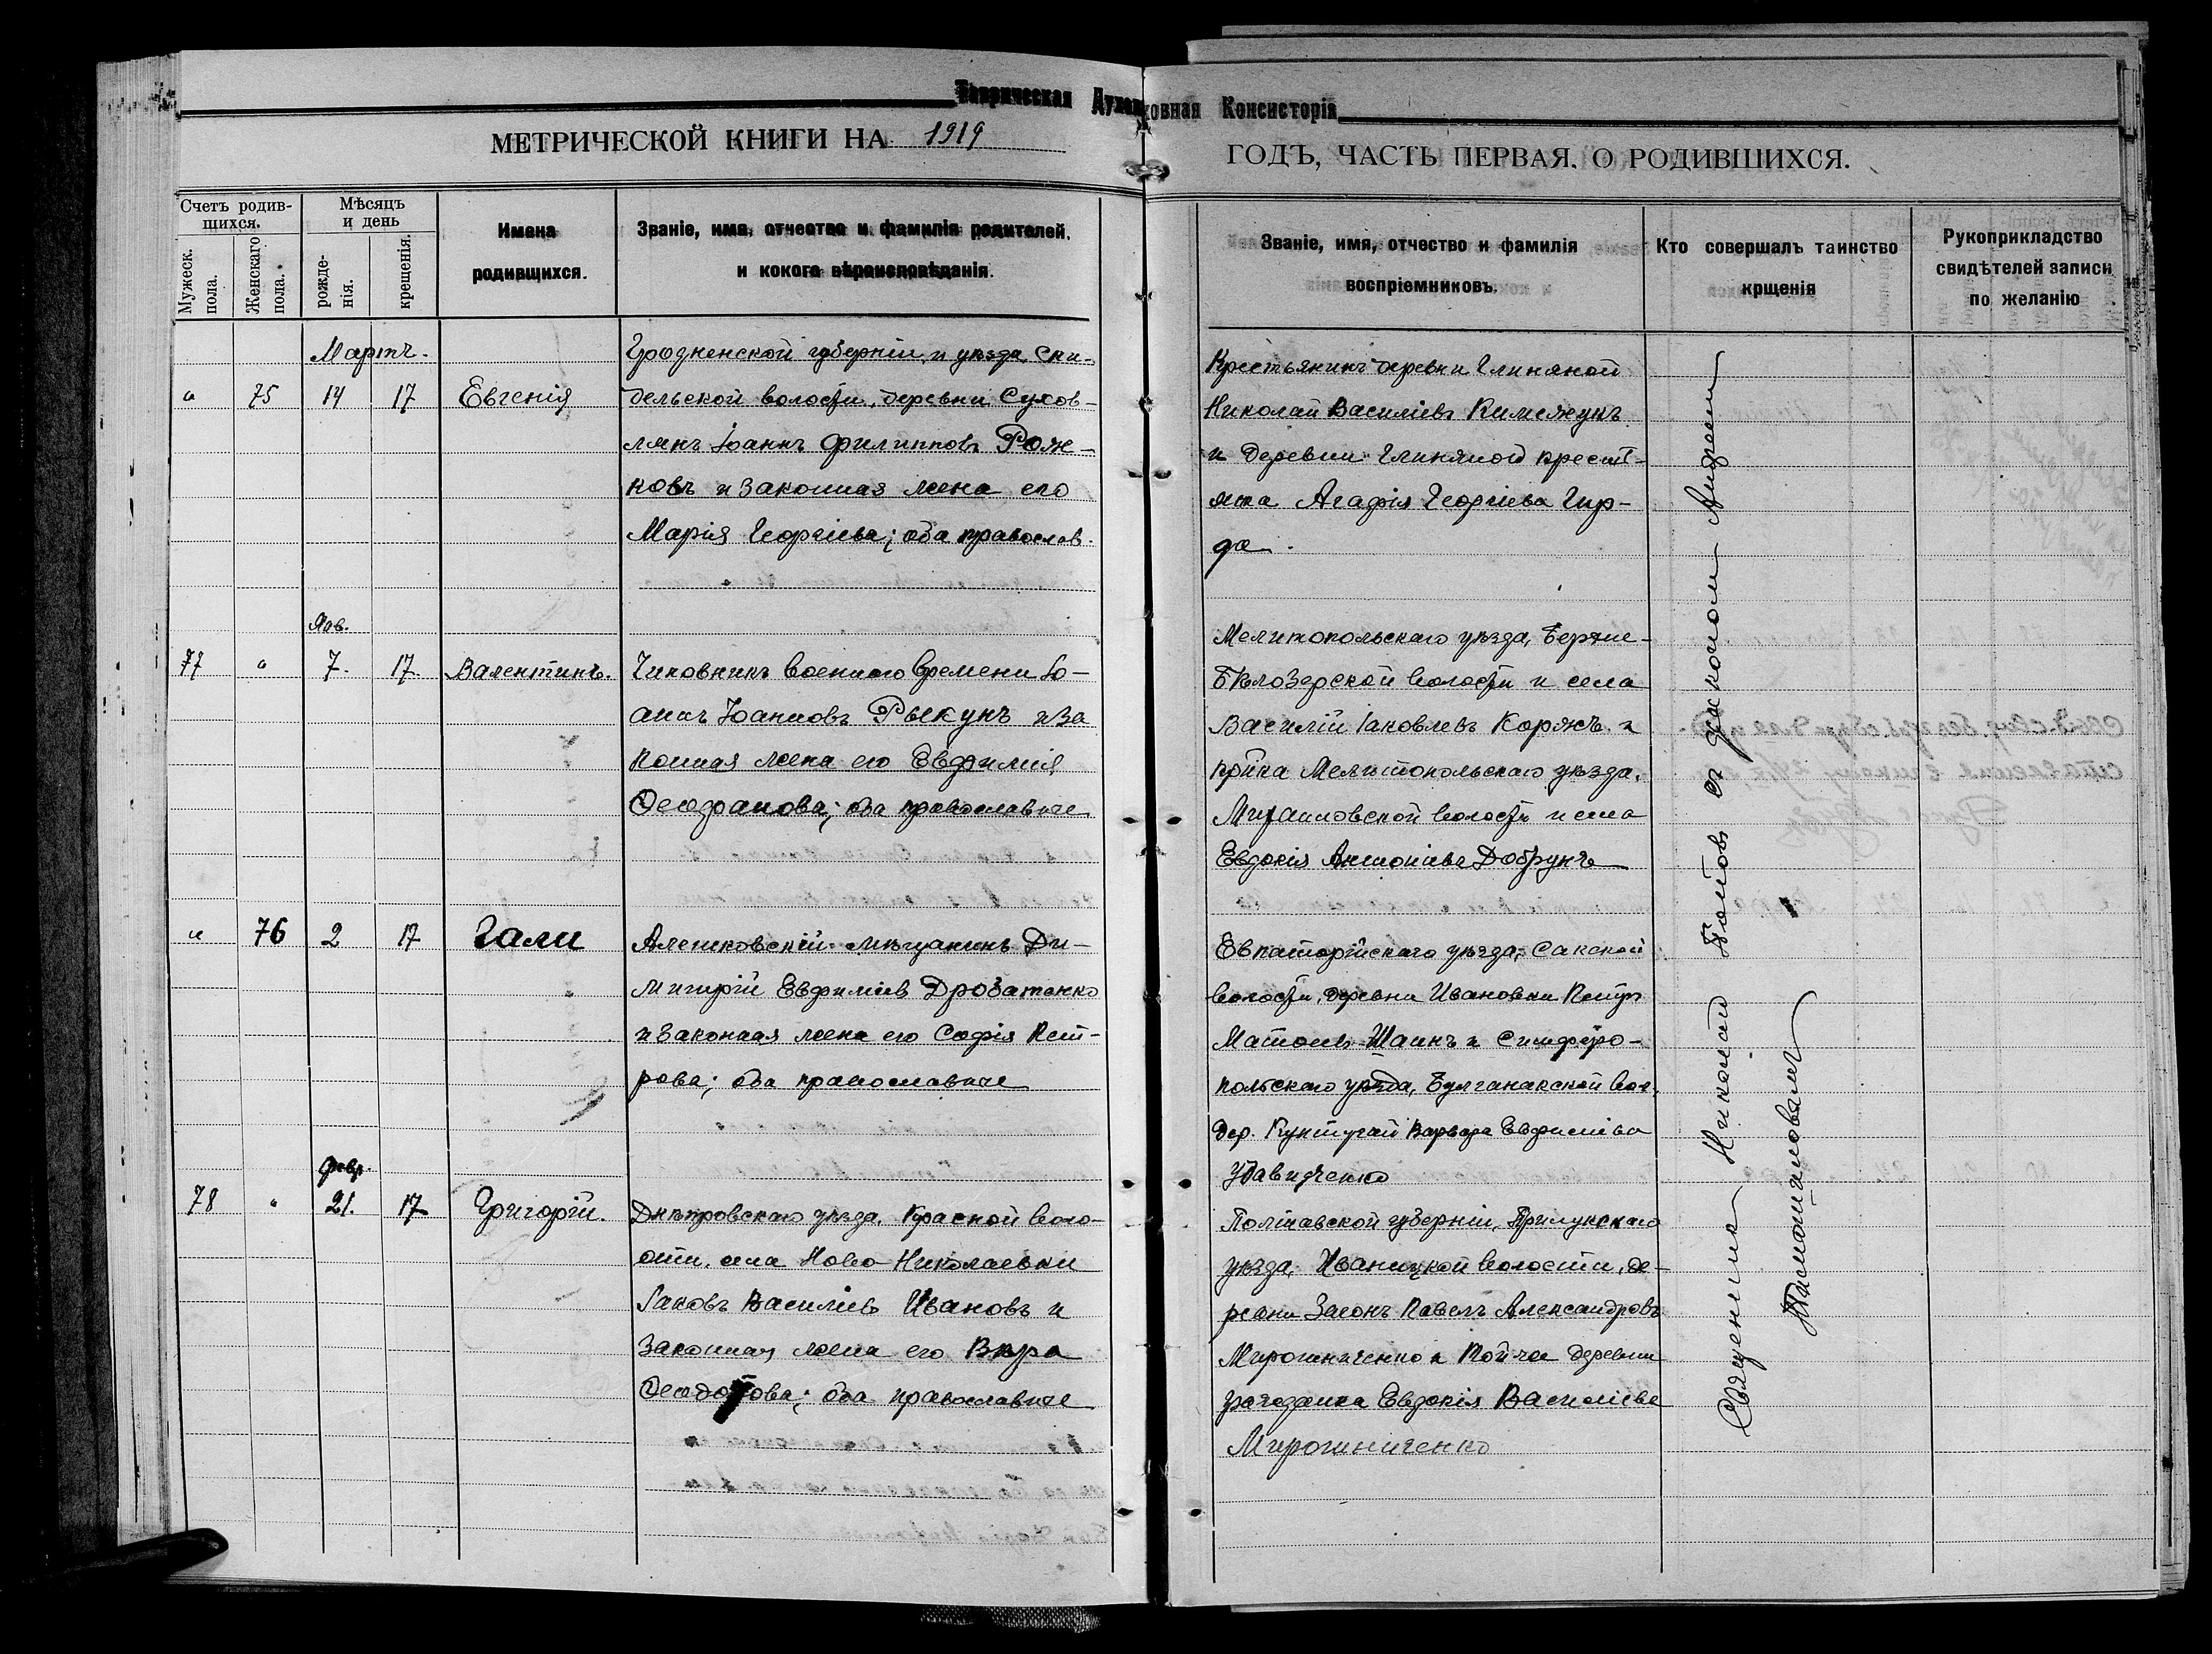 Таврическая Духовная Консисторія
МЕТРИЧЕСКОЙ КНИГИ НА 1919
ГОДЪ, ЧАСТЬ ПЕРВАЯ. О РОДИВШИХСЯ.
Счетъ родив-
шихся.
Мужеск. пола.
Женскаго пола.
Мѣсяцъ
и день
рожде-
нія.
крещенія.
Имена
родивщихся.
Званіе, имя, отчество и фамилія родителей.
и кокого вѣроисповѣданія.
Званіе, имя, отчество и фамилія
воспріемниковъ.
Кто совершалъ таинство
крщенія
Рукоприкладство
свидѣтелей записи
по желанію
Мартъ.
" 75 14 17 Евгенія
Гродненской губерніи и уѣзда, Ски-
дельской волости, деревни Сухов-
лянъ Іоаннъ Филипповъ Рож-
ковъ и законная жена его
Марія Георгіева; оба православ.
Крестьянинъ деревни Глиняной
Николай Василіевъ
и деревни Глиняной крестъ-
янка Агафія Георгіева Гир-
да.
Янв.
77 " 7. 17. Валентинъ.
Чиновникъ военного времени Іо-
аннъ Іоанновъ Рыкунъ и за
конная жена его Евфимія
Феофанова; оба православные
Мелитопольскаго уѣзда, Верхне-
Бѣлозерской волости и села
Василій Іаковлевъ Коржъ и
кр̃нка Мелитопольскаго уѣзда,
Михайловской волости и села
Евдокія Антоніева Добрунъ
" 76 2 17 Гали
Алешковскій мѣщанинъ Ди-
митрій Евфиміев Дробатенко
и законная жена его Софія Пет-
рова; оба православные
Евпаторійскаго уѣзда, Сакской
волости, деревни Ивановки Петръ
Шаинъ и Симферо-
польскаго уѣзда, Булганакской вол.
дер. Кунтугай Варвара Евфиміева
Удавиченко
февр.
78 " 21. 17 Григорій.
Днѣпровскаго уѣзда, Красной воло-
сти, села Ново-Николаевки
Іаковъ Василіевъ Ивановъ и
законная жена его Вѣра
Феодотова; оба православные
Полтавской губерніи, Прилукскаго
уѣзда, Иваницкой волости, де-
ревни Загонъ Павелъ Александровъ
Мирошниченко и той-же деревни
гражданка Евдокія Василіева
Мирошниченко
Священникъ Николай Поповъ съ діакономъ Андреемъ